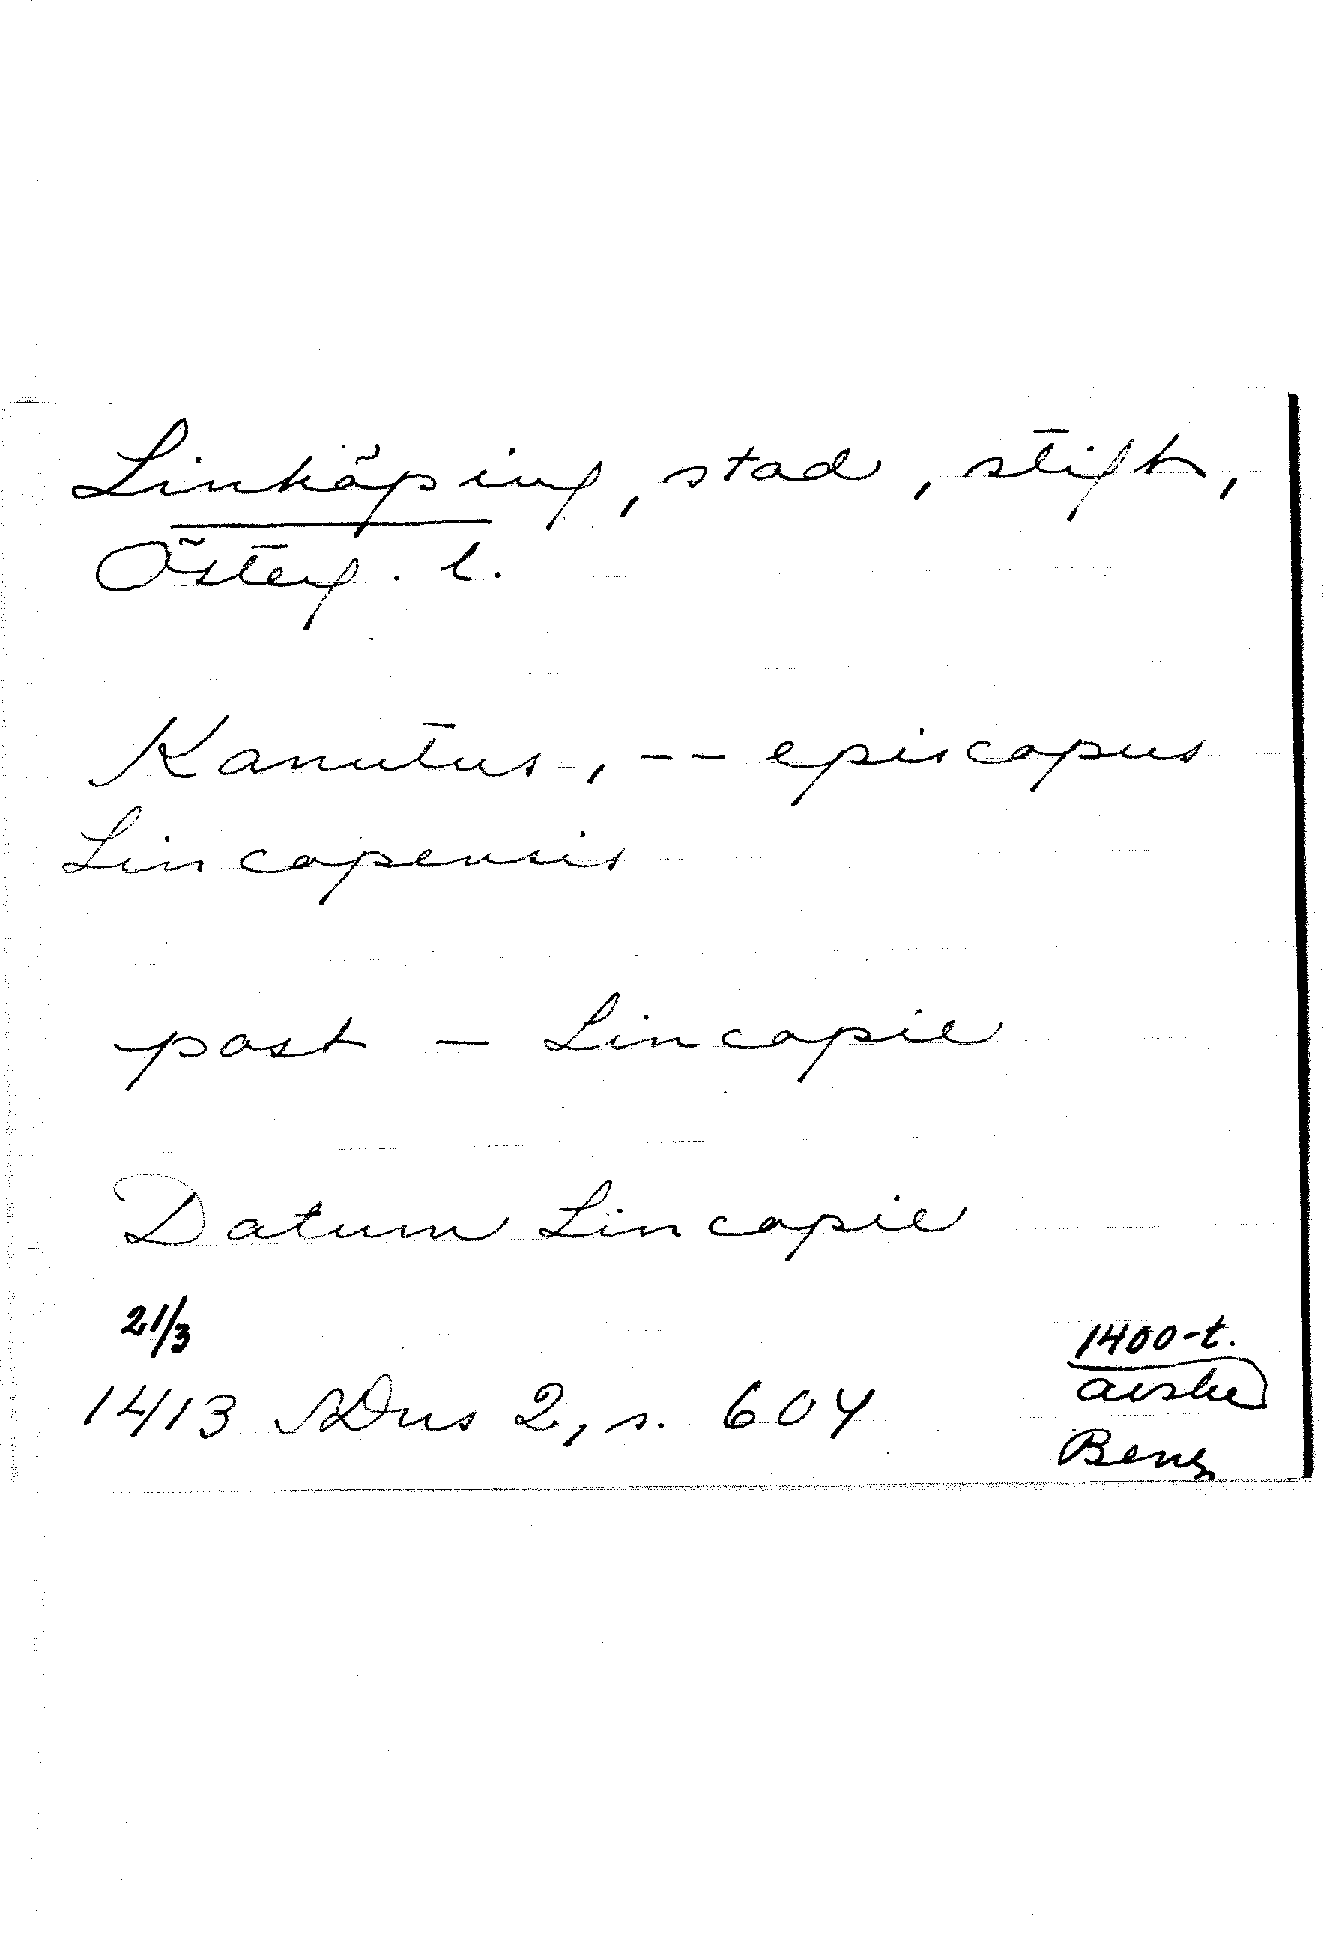 Linköping, stad, stift,
Österg. l.
Kanutus, -- episcopus
Lincopensis
post - Lincopie
Datum Lincopie
21/3
1413 SDns 2, s. 604
1400-t.
avskr